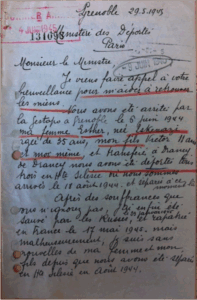 Grenoble 29.5.1945
131693
Ministère des Déportés
Paris
Monsieur le Ministre
Je viens faire appel à votre
bienveillance pour m'aider à retrouver
les miens. Nous avons été arrêté par
la Gestapo à Grenoble le 5 juin 1944
ma femme Esther, née
agée de 35 ans, mon fils Victor 11 ans
et moi même et transféré à Drancy
de Drancy nous avons été déporté tous
trois en Hte Silésie où nous sommes
arrivés le 18 août 1944. et séparé
Après des souffrances que
vous n'ignorez pas, j'ai enfin été
sauvé par les Russes, et rapatrié
en France le 17 mai 1945. mais
malheureusement, je suis sans
nouvelles de ma femme et mon
fils depuis que nous avons été séparé
en Hte Silésie en août 1944.